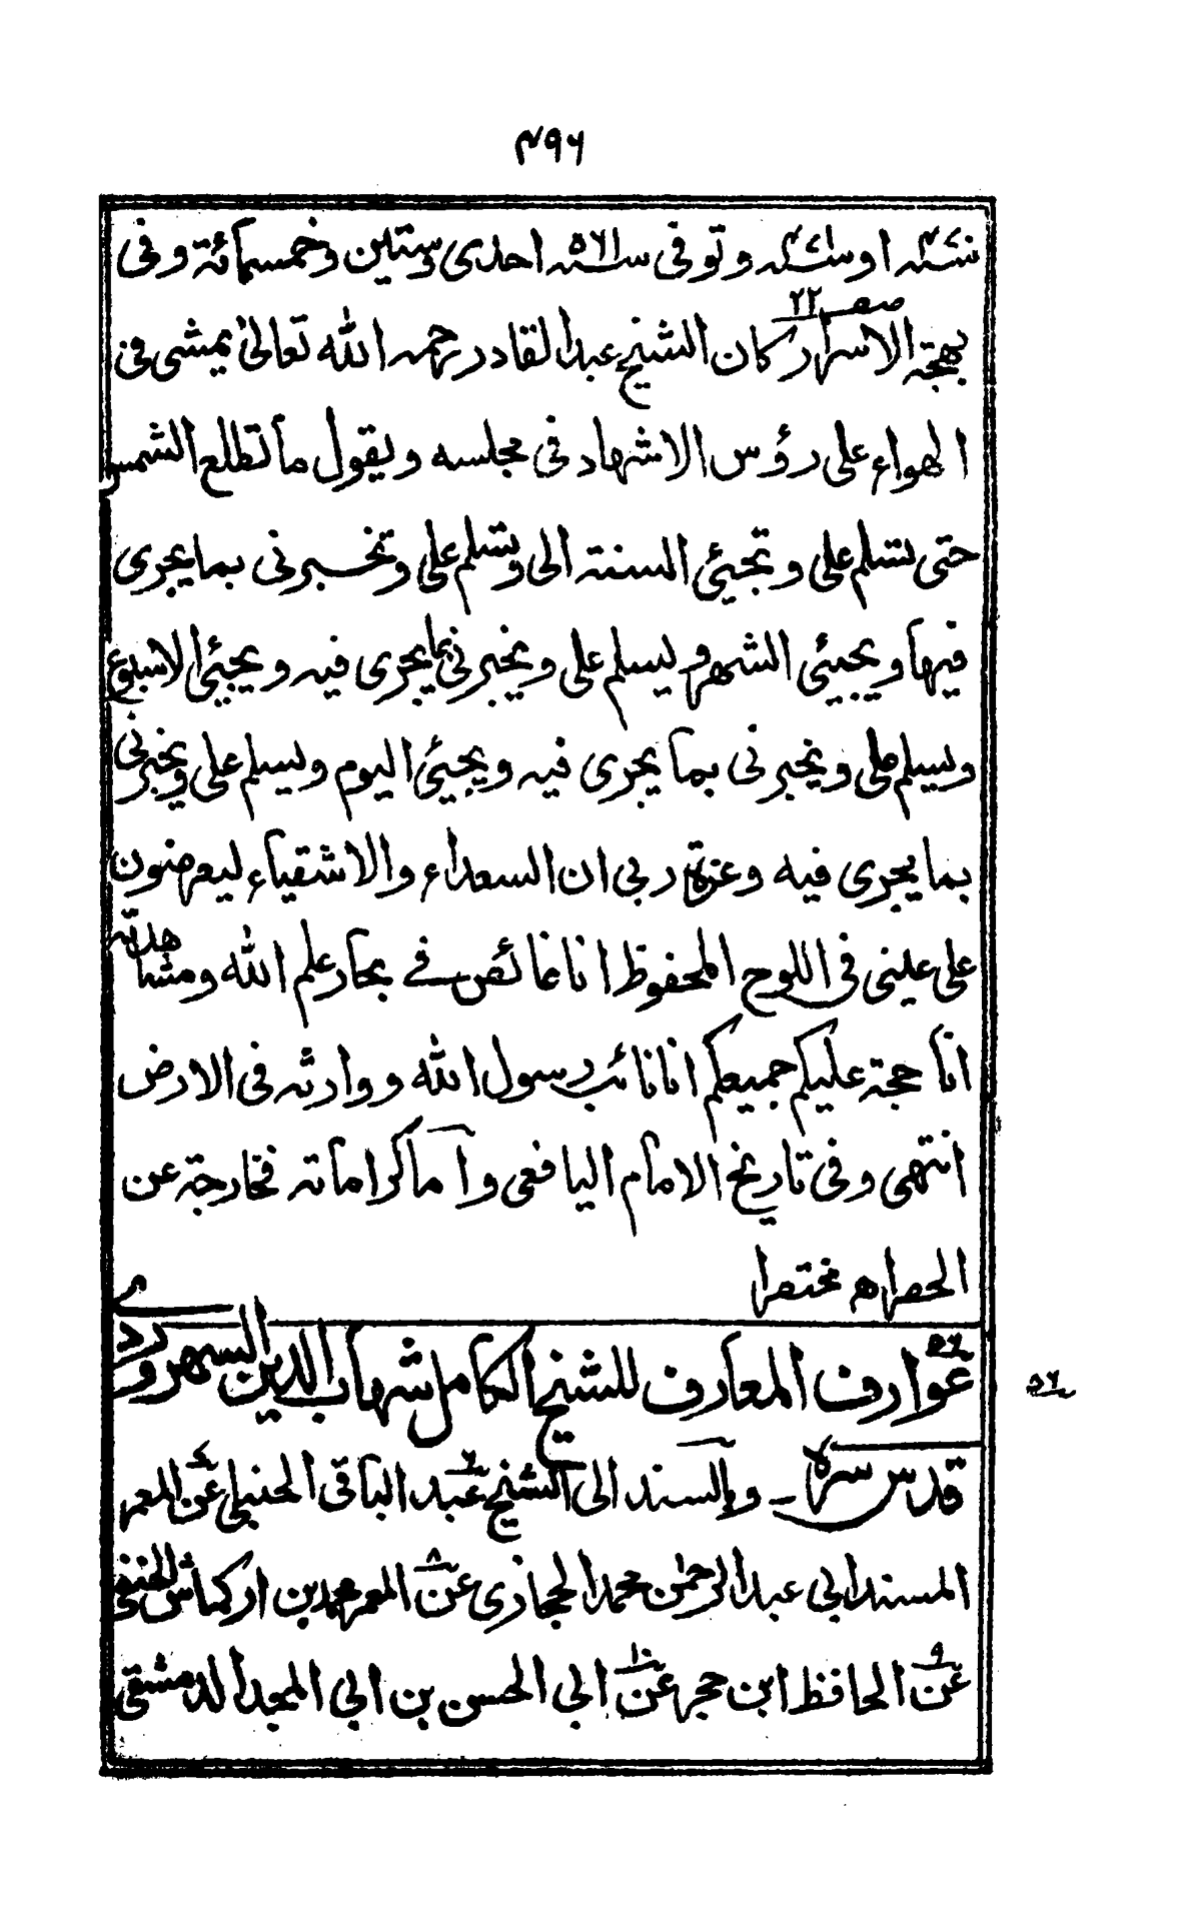 ۴۹۶
سنة ۴۷۰ او سنة ۴۷۱ وتوفى سنة ۵۶۱ احدى وستين وخمسمائة وفى
بهجة الاسرار صفحه ۲۲ كان الشيخ عبد القادر رحمه الله تعالىٰ يمشى فى
الهواء على رؤس الاشهاد فى مجلسه ويقول ما تطلع الشمس
حتى تسلم على وتجيئ السنة الى وتسلم على وتخبرنى بما يجرى
فيها ويجيئ الشهر ويسلم على ويخبرنى بما يجرى فيه ويجيئ الاسبوع
ويسلم على ويخبرنى بما يجرى فيه ويجيئ اليوم ويسلم على ويخبرنى
بما يجرى فيه وعزة ربى ان السعداء والاشقياء ليعرضون
على عينى فى اللوح المحفوظ انا غائص فے بحار علم الله ومشاهدته
انا حجة عليكم جميعكم انا نائب رسول الله ووارثه فى الارض
انتهى وفى تاريخ الامام اليافعى وآما كراماته فخارجة عن
الحصر اه مختصرا
۵۶ عوارف المعارف للشيخ الكامل شهاب الدين السهروردے
۵۶
قدس سره ـ وبالسند الى الشيخ عبد الباقى الحنبلى عن المعمر
المسند ابى عبد الرحمٰن محمد الحجازى ۸ عن المعمر محمد بن اركماش الحنفى
۹ عن الحافظ ابن حجر ۱۰ عن ابى الحسن بن ابى المجد الدمشقى